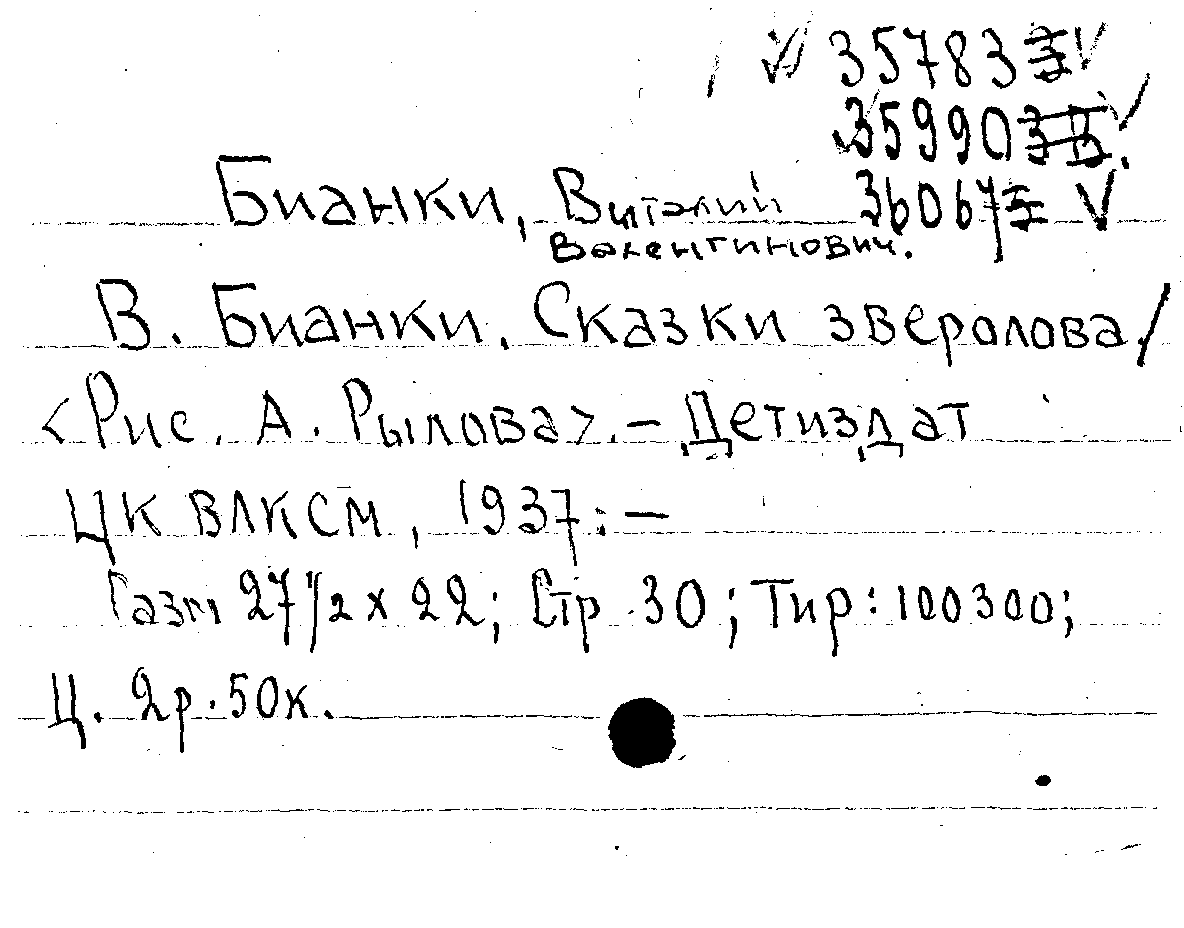 35783 V
35990 V
Бианки, Виталий 36067 V
Валентинович.
В. Бианки. Сказки зверолова./
<Рис. А. Рылова>. — Детиздат
ЦК ВЛКСМ, 1937: —
Разм 27 1/2 x 22; Стр. 30; Тир: 100300;
Ц. 2р. 50к.